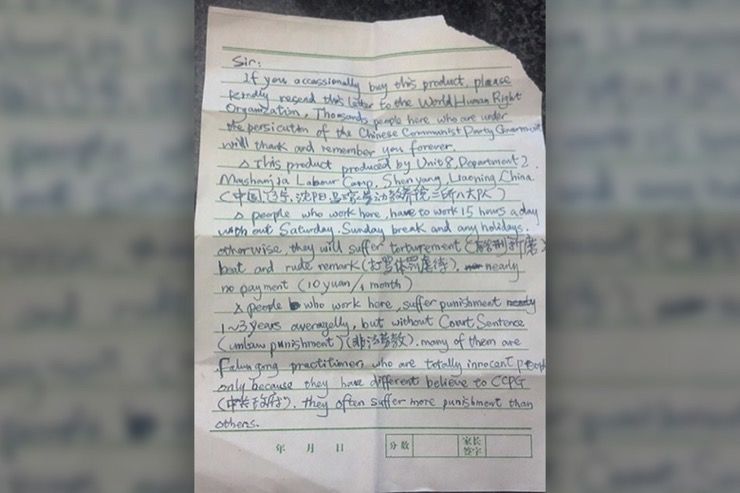 Sir:
If you occassionally buy this product, please
kindly resend this letter to the World Human Right
Organization. Thousands people here who are under
the persicution of the Chinese Communist Party Government
will thank and remember you forever.
△ This product produced by Unit 8. Department 2.
Mashanjia Labour Camp. Shenyang Liaoning, China
(中国,辽宁,沈阳,马三家劳动教养院二所八大队)
△ people who work here, have to work 15 hours a day
with out Saturday. Sunday break and any holidays.
otherwise, they will suffer torturement (酷刑折磨)
beat and rude remark (打骂体罚虐待). nearly
no payment (10 yuan/1 month)
△ people who work here, suffer punishment
1~3 years averagelly, but without Court Sentence
(unlaw punishment) (非法劳教). many of them are
Falun gong practitioner, who are totally innocent people
only because they have different believe to CCPG
(中共政府), they often suffer more punishment than
others.
年 月 日
分数
家长
签字